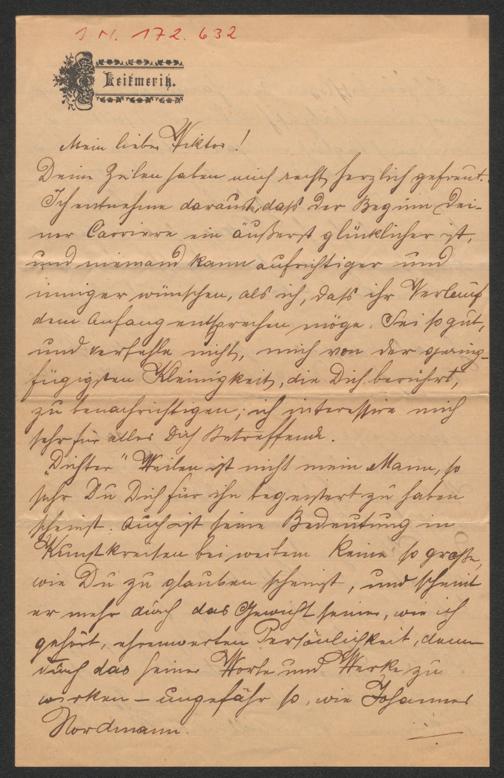 I N. 172.632
Leitmeritz.
Mein lieber Viktor!
Deine Zeilen haben mich recht herzlich gefreut.
Ich entnehme daraus, daß der Beginn Dei-
ner Carriere ein äußerst glücklicher ist,
und niemand kann aufrichtiger und
inniger wünschen, als ich, daß ihr Verlauf
dem Anfang entsprechen möge. Sei so gut,
und verfehle nicht, mich von der gering-
fügigsten Kleinigkeit, die Dich berührt,
zu benachrichtigen; ich interessire mich
sehr für alles Dich Betreffende.
"Dichter" Weilen ist nicht mein Mann, so
sehr Du Dich für ihn begeistert zu haben
scheinst. Auch ist seine Bedeutung in
Kunstkreisen bei weitem keine so große,
wie Du zu glauben scheinst, und scheint
er mehr durch das Gewicht seiner, wie ich
gehört, ehrenwerten Persönlichkeit, denn
durch das seiner Worte und Werke zu
wirken – ungefähr so, wie Johannes
Nordmann.